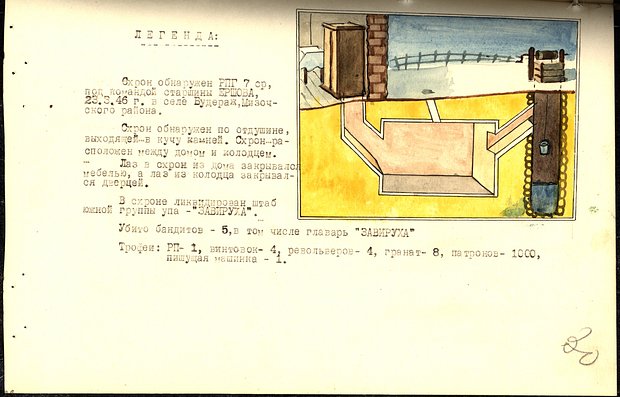 ЛЕГЕНДА:
Схрон обнаружен РПГ 7 ср,
под командой старшины ЕРШОВА,
23.3.46 г. в селе Будераж,Мизоч-
ского района.
Схрон обнаружен по отдушине,
выходящей-в кучу камней. Схрон-ра-
сположен между домом и колодцем.
Лаз в схрон из дома закрывался
мебелью, а лаз из колодца закрывал-
ся дверцей.
В схроне ликвидирован штаб
южной группы упа -"ЗАВИРУХА".
Убито бандитов - 5,в том числе главарь "ЗАВИРУХА"
Трофеи: РП- 1, винтовок- 4, револьверов - 4, гранат- 8, патронов- 1000,
пишущая машинка - 1.
20